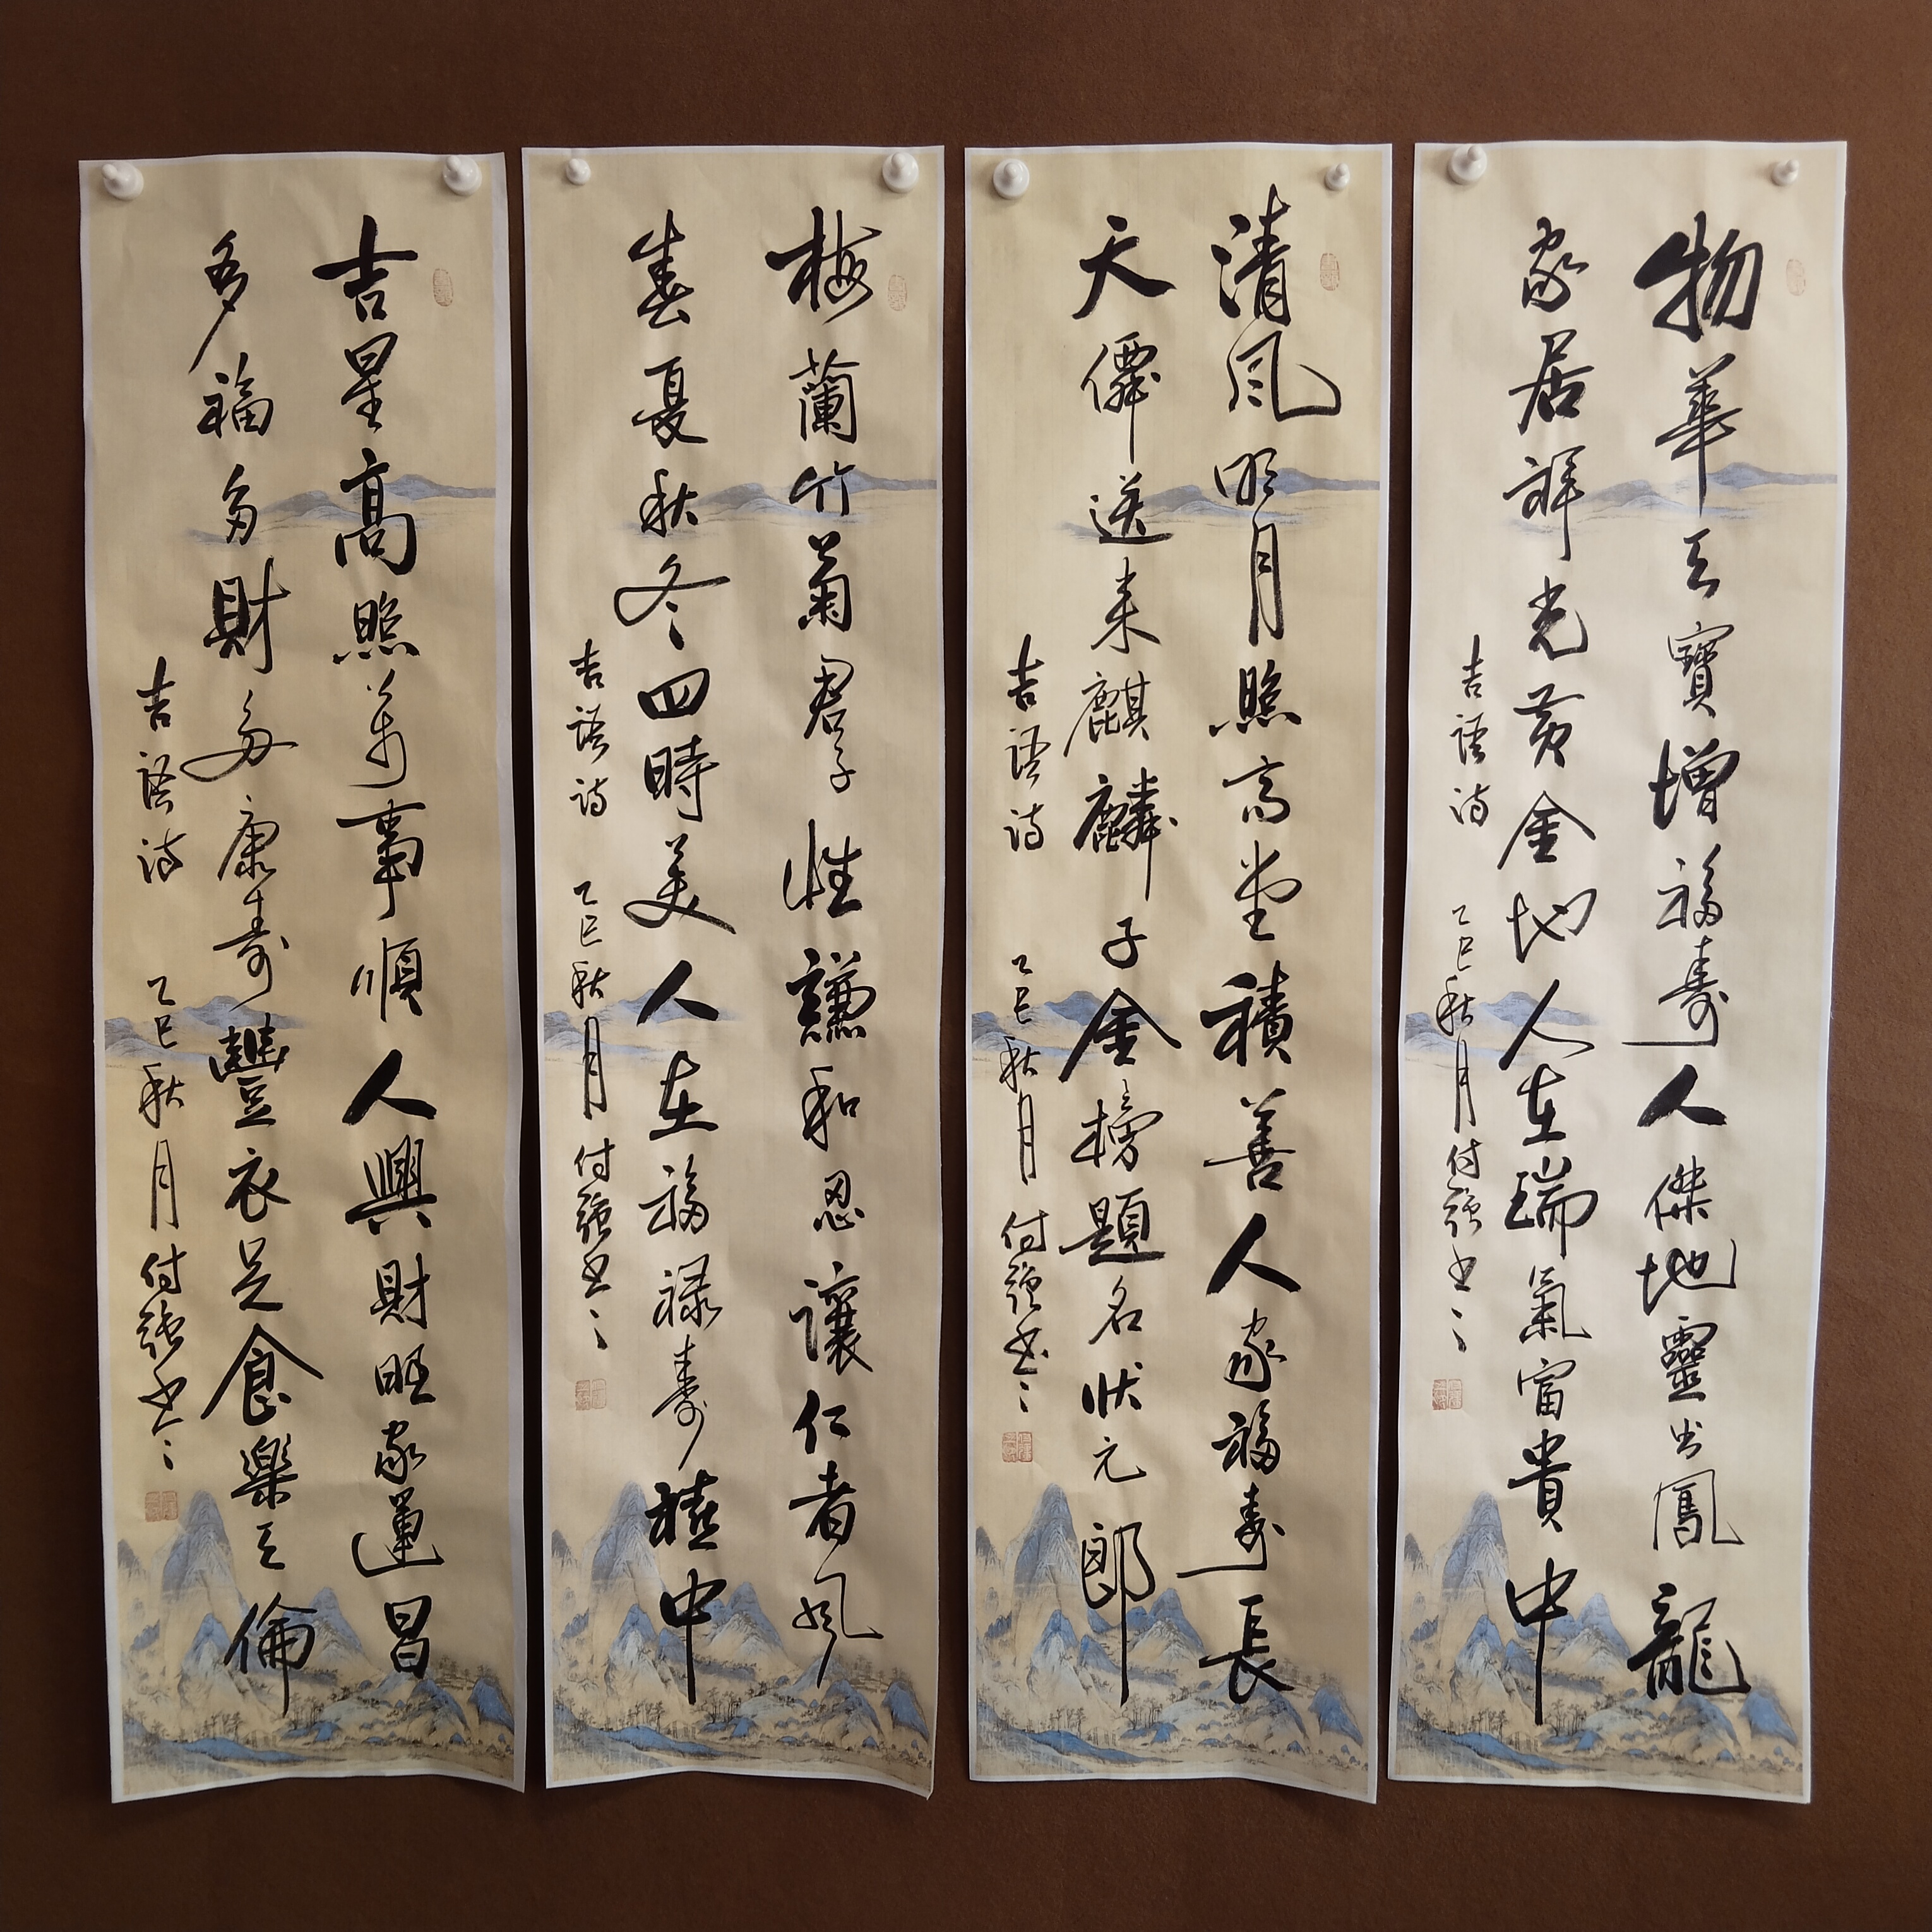 物華天寶增福壽人傑地靈出鳳龍
家居祥光黄金地人在瑞氣富貴中
吉語诗 乙巳秋月付強书
清風明月照高堂積善人家福壽長
天僊送来麒麟子金榜題名狀元郎
吉語诗 乙巳秋月付強书
梅蘭竹菊君子性謙和忍讓仁者風
春夏秋冬四時美人在福禄壽禧中
吉語诗 乙巳秋月付強书
吉星高照萬事順人興財旺家運昌
多福多財多康壽豐衣足食樂天倫
吉語诗 乙巳秋月付強书